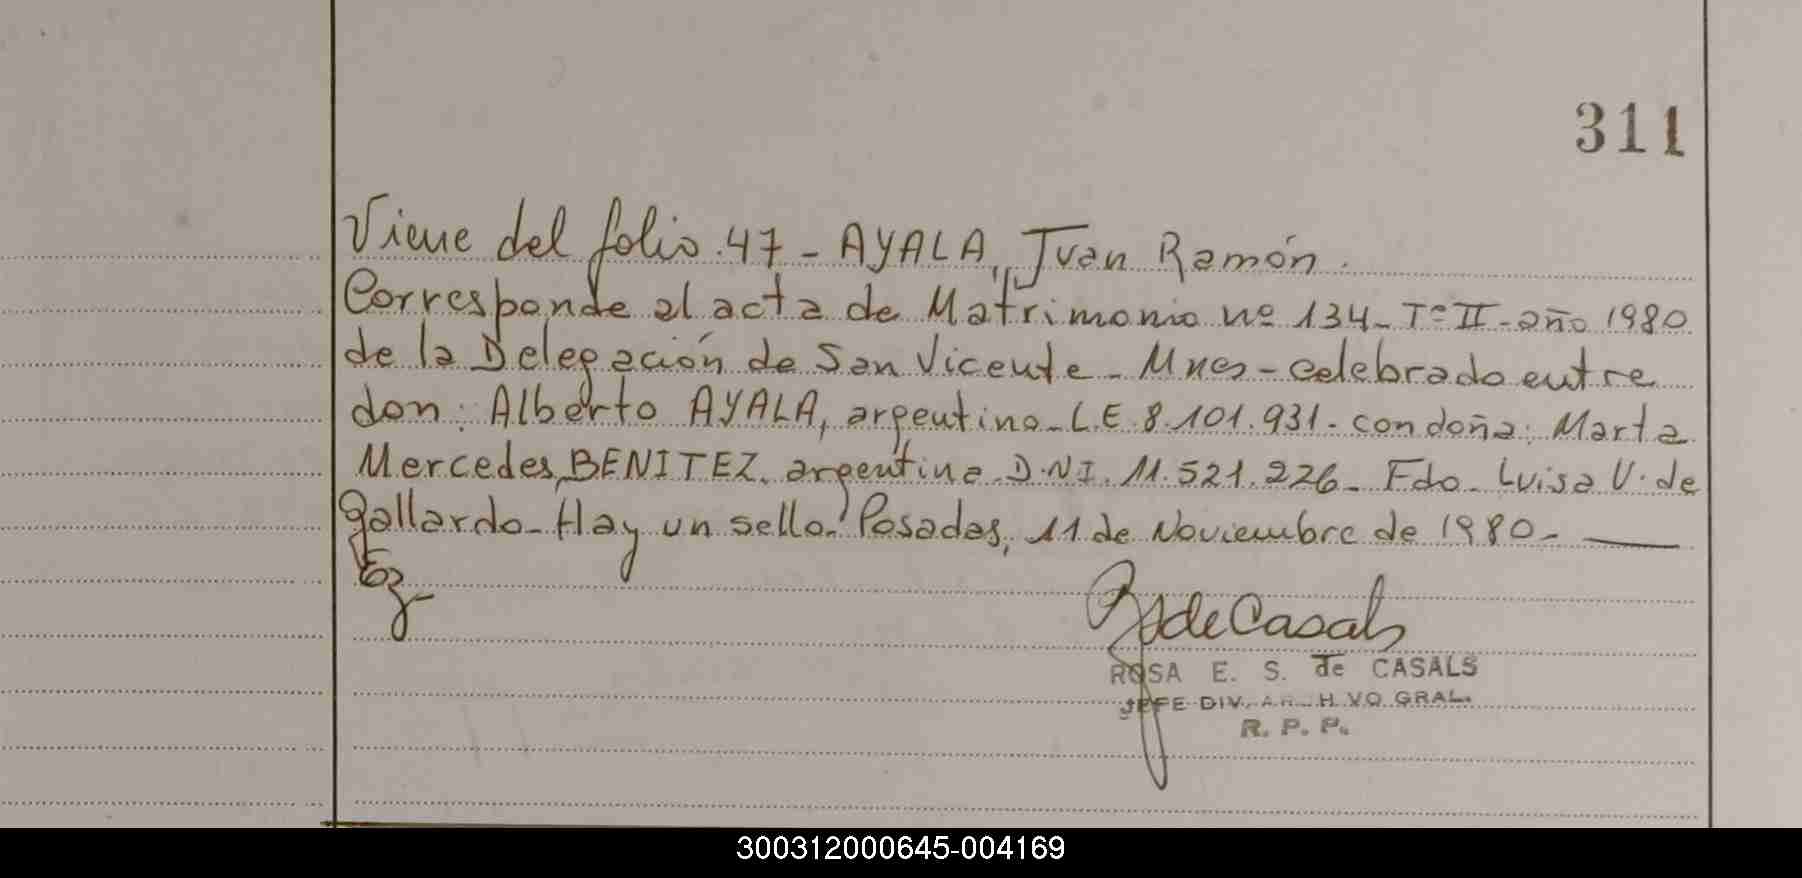 311
Viene del folio 47 - AYALA, Juan Ramón.
Corresponde al acta de Matrimonio nº 134 - Tº II - año 1980
de la Delegación de San Vicente - Mnes - celebrado entre
don: Alberto AYALA, argentino - L.E. 8.101.931 - con doña: Marta
Mercedes BENITEZ, argentina - D.N.I. 11.521.226 - Fdo - Luisa V. de
Gallardo - Hay un sello. Posadas, 11 de Noviembre de 1980 -
de Casals
ROSA E. S. de CASALS
JEFE DIV. ARCHIVO GRAL.
R. P. P.
300312000645-004169